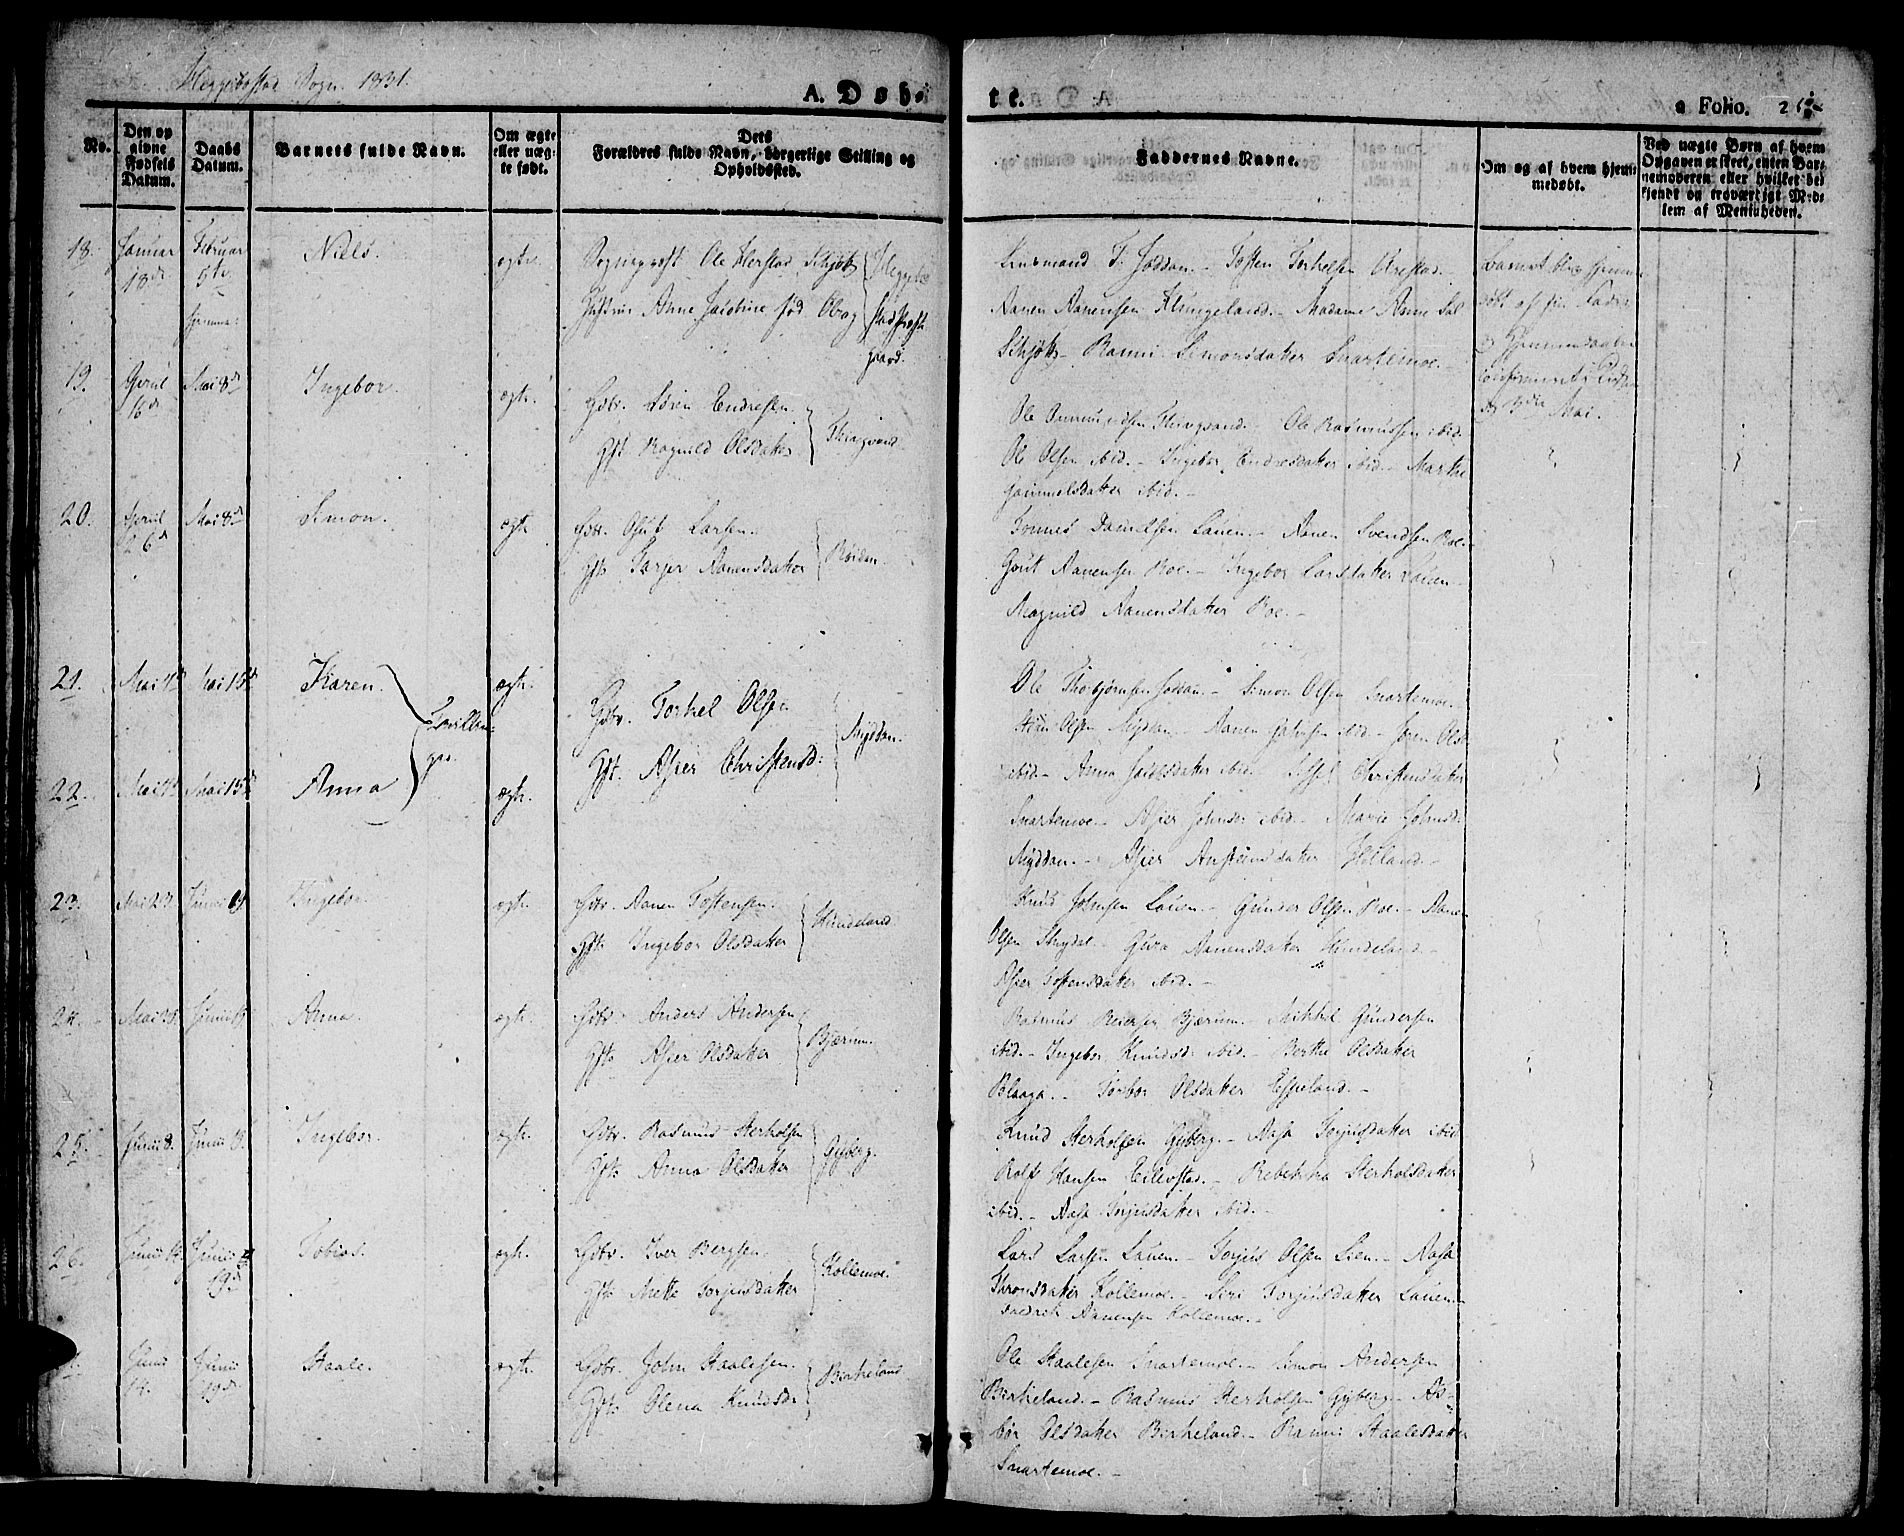 Heggebostad Sogn 1831.
A. Døbte.
a Folio. 26
No.
Den opgivne Fødsels Datum.
Daabs Datum.
Barnets fulde Navn.
Om ægte eller uægte født.
Dets Forældres fulde Navn, borgerlige Stilling og Opholdssted.
Faddernes Navne.
Om og af hvem hjemmedøbt.
Ved uægte Børn af hvem Opgaven er skeet, enten Barnemoderen eller hvilket bekjendt og troværdigt Medlem af Menigheden.
18. Januar 18de Februar 5te hjemme: Niels. ægte.
Sogneprest Ole Herstad Schjøtt
Hustrue Anne Jacobine fød Obag
Heggebostad Præstegaard.
Lensmand T. Jøddan. - Tosten Torkelsen Urestad.
Aanen Aanensen Klungeland. - Madame Anne Sal
Schjøtt - Ranni Simonsdatter Snartemoe. -
Barnet blev hjemmedøbt af sin Fader
og Hjemmedaaben
confirmeret i Kirken
d. 3die Mai.
19. April 16de Mai 8de Ingebor. ægte.
Gdbr. Sören Endresen.
Gft. Ragnild Olsdatter
Thingvand
Ole Ommundsen Thingvand. - Ole Rasmussen ibid.
Ole Olsen ibid. - Ingebor Endresdatter ibid. - Marthe
Gammelsdatter ibid. -
20. April 26d Mai 8de Simon. ægte
Gdbr. Gjut Larsen.
Gft. Tarjer Aanensdatter
Röidan.
Tønnes Danielsen Lauen. - Aanen Svendsen Roe. -
Gout Aanensen Roe. - Ingebor Larsdatter Lauen. -
Magnild Aanensdatter Roe. -
21. Mai 4de Mai 15de Karen. ægte.
Tvillinger.
22. Mai 4de Mai 15de Anna ægte.
Gdbr. Torkel Olsen
Gft. Asser Christensd:
Mygdan.
Ole Thorbjørnsen Jøddan. - Simon Olsen Snartemoe.
Olsen Mygdan. - Aanen Johnsen ibid. - Sören Ols
ibid. - Anna ibid. Sissel Christensdatter
Snartemoe. - Asser Johnsd: ibid. - Marie Johnsd:
Mygdan. - Asser Austensdatter Holland. -
23. Mai 23. Junii 19. Ingebor. ægte.
Gdbr. Aanen Tostensen.
Gft. Ingebor Olsdatter
Hundeland
Knud Johnsen Lauen. - Gunder Olsen Roe. - Aanen
Olsen. - Guro Aanensdatter Hundeland. -
Asser Tostensdatter ibid. -
24. Mai Junii 19 Anna. ægte.
Gdbr. Anders Andersen
Gft. Asser Olsdatter
Bjærum.
Rasmus Reiersen Bjærum. - Mikkel Gundersen
ibid. - Ingebor Knudsd. ibid. - Berthe Olsdatter
Blaaga. - Torbor Olsdatter Espeland. -
25. Junii 8. Junii 19. Ingebor. ægte.
Gdbr. Rasmus Sterholsen
Gft. Anna Olsdatter
Gyberg.
Knud Sterholsen Gyberg. - Aasa Torjusdatter ibid
Rolf Hansen Eilevstad. - Rebekka Sterholsdatter
ibid. - Aasa Torjusdatter ibid. -
26. Junii 14 Junii 19de Tobias. ægte.
Gdbr. Iver Bergsen
Gft. Mette Torjusdatter
Kollemoe.
Lars Larsen Lauen. - Torjus Olsen Lien. - Aasa
Thronsdatter Kollemoe. - Siri Torjusdatter Lauen. -
Aanensen Kollemoe. -
Junii 14. Junii 19de Staale. ægte.
Gdbr. John Staalesen.
Gft. Olena Knudsdr
Birkeland
Ole Staalesen Snartemoe. - Simon Andersen
Birkeland. - Rasmus Sterholsen Gyberg. - As-
bør Olsdatter Birkeland. - Ranni Staalesdatter
Snartemoe. -